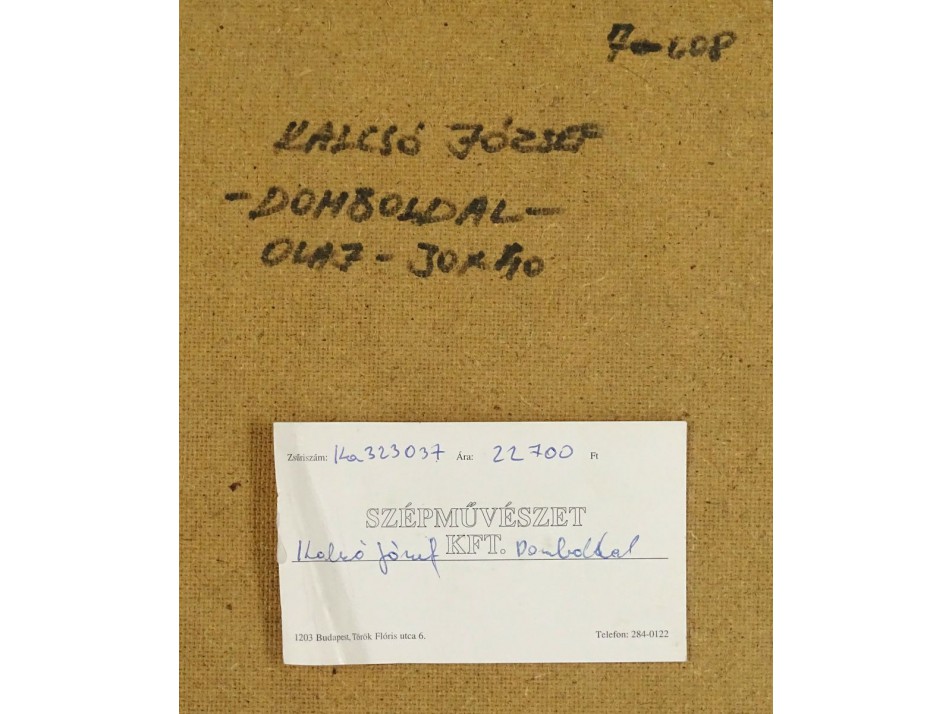 7-608
KALCSÓ JÓZSEF
-DOMBOLDAL-
OLAJ - 30x40
Zsűriszám: Ka323037 Ára: 22700 Ft
SZÉPMŰVÉSZET
KFT.
Kalcsó József Domboldal
1203 Budapest, Török Flóris utca 6. Telefon: 284-0122